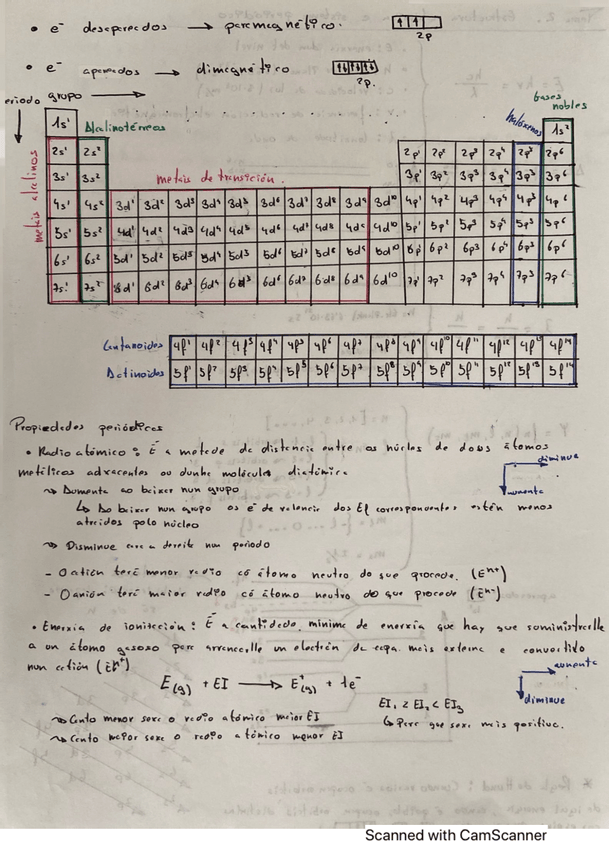 • e⁻ desaparecados → paramagnético. ↑ ↑
2p
• e⁻ aparecados → dimagnético ↑↓ ↑↓ ↑↓
2p.
eriodo grupo → gases nobles
1s¹ Alcalinotérreos halóxenos 1s²
metais alcalinos
2s¹ 2s² 2p¹ 2p² 2p³ 2p⁴ 2p⁶
3s¹ 3s² metais de transición. 3p¹ 3p² 3p³ 3p⁴ 3p⁶
4s¹ 4s² 3d¹ 3d² 3d³ 3d⁶ 3d⁷ 3d⁸ 3d⁹ 3d¹⁰ 4p¹ 4p² 4p³ 4p⁴ 4p⁶
5s¹ 5s² 4d¹ 4d² 4d³ 4d⁴ 4d⁵ 4d⁶ 4d⁷ 4d⁸ 4d¹⁰ 5p¹ 5p² 5p³ 5p⁴ 5p⁶
6s¹ 6s² 5d¹ 5d² 5d³ 5d⁴ 5d⁶ 5d⁷ 5d⁸ 5d⁹ 6p¹ 6p² 6p³ 6p⁴ 6p⁶
7s¹ 7s² 6d² 6d³ 6d⁴ 6d⁶ 6d⁷ 6d⁸ 6d⁹ 6d¹⁰ 7p¹ 7p² 7p³ 7p⁴ 7p⁶
Lantanoides 4f¹ 4f² 4f³ 4f⁴ 4f⁶ 4f⁷ 4f⁸ 4f⁹ 4f¹⁰ 4f¹¹ 4f¹² 4f¹³ 4f¹⁴
Actinoides 5f¹ 5f² 5f³ 5f⁴ 5f⁵ 5f⁶ 5f⁷ 5f⁸ 5f⁹ 5f¹⁰ 5f¹¹ 5f¹² 5f¹³ 5f¹⁴
Propiedades periódicas
• Radio atómico: É a metade da distancia entre os núcleos de dous átomos
metálicos adxacentes ou dunha molécula diatómica
diminue
aumenta
⇝ Aumenta ao baixar nun grupo
↳ Ao baixar nun grupo os e⁻ de valencia dos El correspondentes están menos
atraídos polo núcleo
⇝ Disminue cara a dereita nun período
- O catión terá menor radio có átomo neutro do que procede. (Eⁿ⁺)
- O anión terá maior radio có átomo neutro do que procede (Eⁿ⁻)
• Enerxía de ionización: É a cantidade mínima de enerxía que hay que suministrarlle
a un átomo gasoso para arrancarlle un electrón da capa máis externa e convertido
nun catión (Eⁿ⁺)
aumenta
diminue
E(g) + EI → E⁺(g) + 1e⁻
EI₁ < EI₂ < EI₃
↳ Para que sexa mais positiva.
⇝ Canto menor sexa o radio atómico maior EI
⇝ Canto maior sexa o radio atómico menor EI
Scanned with CamScanner